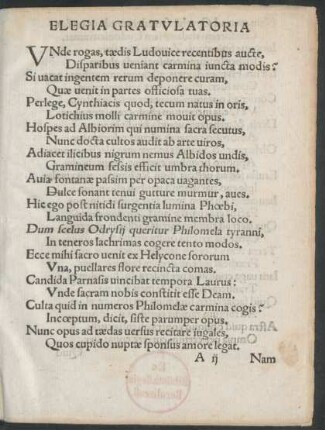 ELEGIA GRATVLATORIA
VNde rogas, tædis Ludouice recentibus aucte,
Disparibus ueniant carmina iuncta modis?
Si uacat ingentem rerum deponere curam,
Quæ uenit in partes officiosa tuas.
Perlege, Cynthiacis quod, tecum natus in oris,
Lotichius molli carmine mouit opus.
Hospes ad Albiorim qui numina sacra secutus,
Nunc docta cultos audit ab arte uiros,
Adiacet ilicibus nigrum nemus Albidos undis,
Gramineum fessis efficit umbra thorum.
Auiæ fontanæ passim per opaca uagantes,
Dulce sonant tenui gutture murmur, aues.
Hic ego post nitidi surgentia lumina Phœbi,
Languida frondenti gramine membra loco.
Dum scelus Odrysij queritur Philomela tyranni,
In teneros lachrimas cogere tento modos.
Ecce mihi sacro uenit ex Helycone sororum
Vna, puellares flore reuincta comas.
Candida Parnasis uincibat tempora Laurus:
Vnde sacram nobis constitit esse Deam.
Culta quid in numeros Philomelæ carmina cogis?
Incœptum, dicit, siste parumper opus.
Nunc opus ad tædas uersus recitare iugales,
Quos cupido nuptæ sponsus amore legat.
A ij Nam